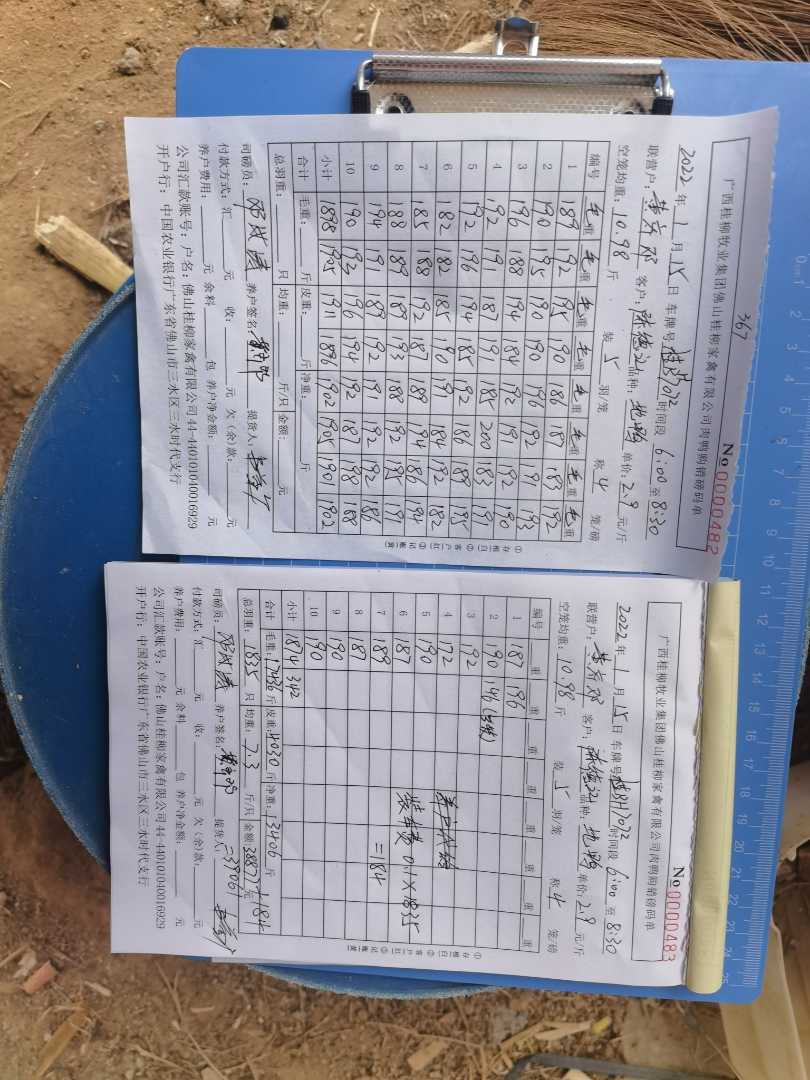 367
广西桂柳牧业集团佛山桂柳家禽有限公司肉鸭购销磅码单
No 0000482
2022 年 1 月 15 日 车牌号 时间段 6:00 至 8:30
联营户： 客户：陈德 品种：地鸭 单价：2.9 元/斤
空笼均重：10.98 斤 装 5 羽/笼 称 4 笼/磅
编号 毛重 毛重 毛重 毛重 毛重 毛重 毛重 毛重
1 189 192 195 190 186 187 183 192
2 190 195 190 190 196 192 191 193
3 196 188 194 184 192 191 192 190
4 192 191 187 191 185 200 183 191
5 192 196 194 185 192 186 189 195
6 182 182 185 190 191 184 192 182
7 185 188 192 187 189 194 186 194
8 188 189 189 193 188 192 195 191
9 194 191 189 192 192 192 192 186
10 190 193 196 194 192 187 198 188
小计 1898 1905 1911 1896 1902 1905 1901 1902
合计 毛重： 斤 皮重： 斤 净重： 斤
总羽重： 只 均重： 斤/只 金额： 元
司磅员： 养户签名： 提货人：
付款方式：汇 元 收： 元 欠（余）款： 元
养户费用： 元 余料 包 养户净金额： 元
公司汇款账号：户名：佛山桂柳家禽有限公司 44-440101040016929
开户行：中国农业银行广东省佛山市三水区三水时代支行
①存根（白） ②客户（红） ③记账（黄）
广西桂柳牧业集团佛山桂柳家禽有限公司肉鸭购销磅码单
No 0000483
2022 年 1 月 15 日 车牌号 时间段 6:00 至 8:30
联营户： 客户：陈德 品种：地鸭 单价：2.9 元/斤
空笼均重：10.98 斤 装 5 羽/笼 称 4 笼/磅
编号 重 重 重 重 重 重 重 重
1 187 196
2 190 146 (3笼)
3 192
4 172 养户代给
5 190
6 187 装车费 0.1×1835
7 189 =184
8 187
9 190
10 190
小计 1874 342
合计 毛重：17436 斤 皮重：4030 斤 净重：13406 斤
总羽重：1835 只 均重：7.3 斤/只 金额：38877+184 元
=39061
司磅员： 养户签名： 提货人：
付款方式：汇 元 收： 元 欠（余）款： 元
养户费用： 元 余料 包 养户净金额： 元
公司汇款账号：户名：佛山桂柳家禽有限公司 44-440101040016929
开户行：中国农业银行广东省佛山市三水区三水时代支行
①存根（白） ②客户（红） ③记账（黄）